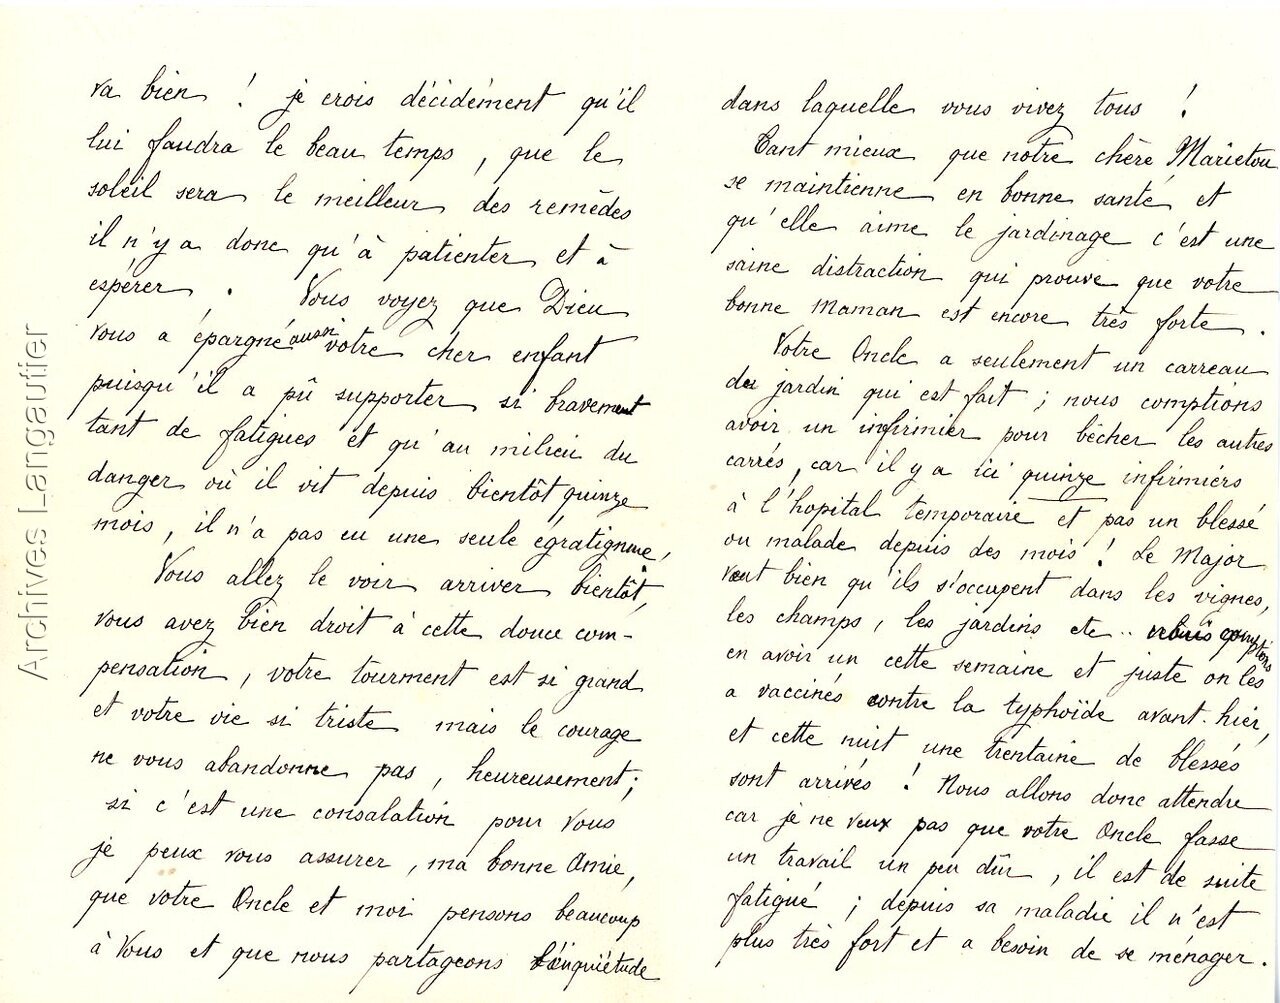 va bien ! je crois décidément qu'il
lui faudra le beau temps, que le
soleil sera le meilleur des remèdes
il n'y a donc qu'à patienter et à
espérer. Vous voyez que Dieu
vous a épargné aussi votre cher enfant
puisqu'il a pû supporter si bravement
tant de fatigues et qu'au milieu du
danger où il vit depuis bientôt quinze
mois, il n'a pas eu une seule égratignure,
Vous allez le voir arriver bientôt,
vous avez bien droit à cette douce com-
pensation, votre tourment est si grand
et votre vie si triste mais le courage
ne vous abandonne pas, heureusement;
si c'est une consalation pour Vous
je peux vous assurer, ma bonne Amie,
que votre Oncle et moi pensons beaucoup
à Vous et que nous partageons l'inquiétude
dans laquelle vous vivez tous !
Tant mieux que notre chère Marietou
se maintienne en bonne santé et
qu'elle aime le jardinage c'est une
saine distraction qui prouve que votre
bonne Maman est encore très forte.
Votre Oncle a seulement un carreau
du jardin qui est fait ; nous comptions
avoir un infirmier pour bêcher les autres
carrés, car il y a ici quinze infirmiers
à l'hopital temporaire et pas un blessé
ou malade depuis des mois ! Le Major
veut bien qu'ils s'occupent dans les vignes,
les champs, les jardins etc.. nous comptions
en avoir un cette semaine et juste on les
a vaccinés contre la typhoïde avant-hier,
et cette nuit une trentaine de blessés
sont arrivés ! Nous allons donc attendre
car je ne veux pas que votre Oncle fasse
un travail un peu dûr, il est de suite
fatigué ; depuis sa maladie il n'est
plus très fort et a besoin de se ménager.
Archives Langautier